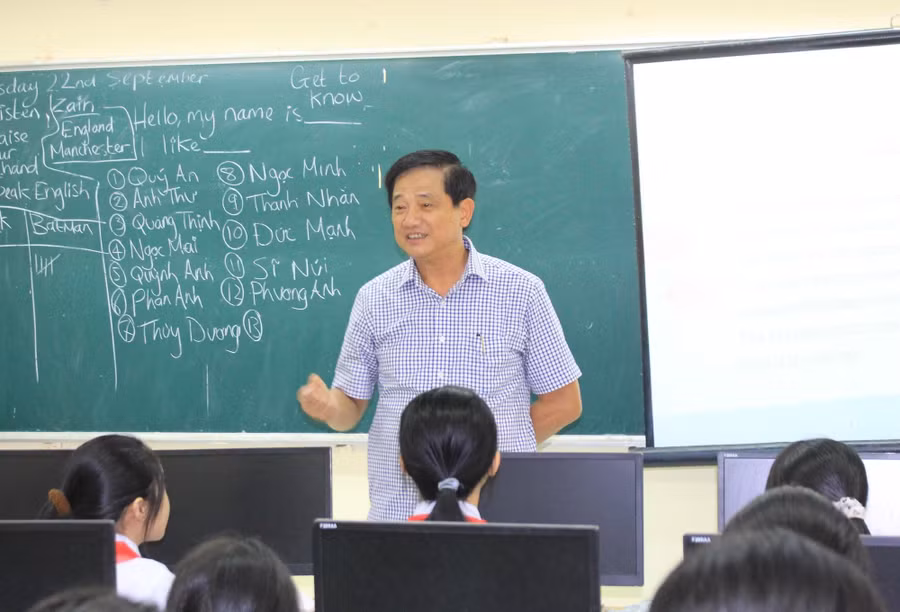 sday 22nd September
Get to
know
isten,
Zain
England
Manchester
Hello, my name is ____
I like ____
aise
ur
hand
peak English
Batman
① Quý An
② Anh Thư
③ Quang Thịnh
④ Ngọc Mai
⑤ Quỳnh Anh
⑥ Phan Anh
⑦ Thùy Dương
⑧ Ngọc Minh
⑨ Thanh Nhàn
⑩ Đức Mạnh
⑪ Sĩ Núi
⑫ Phương Anh
⑬